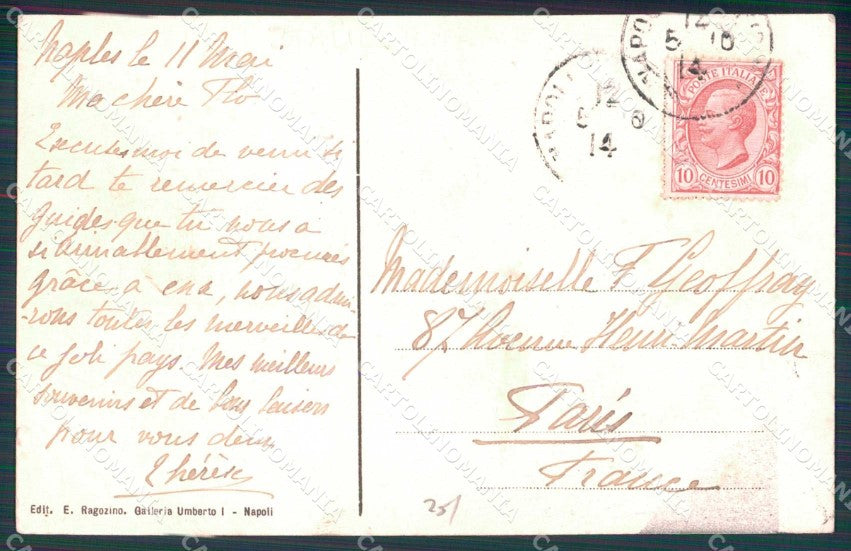 Naples le 11 Mai
Ma chère Flo
Excuses moi de venir si
tard te remercier des
Guides que tu nous a
si aimablement procurés
grâce à eux, nous admi-
-rons toutes les merveilles de
ce joli pays. Mes meilleurs
souvenirs et de bons baisers
pour vous deux
Thérèse
Edit. E. Ragozino. Galleria Umberto I - Napoli
NAPOLI
12
5
14
NAPOLI
12
5 10
14
POSTE ITALIANE
10 CENTESIMI 10
Mademoiselle F Geoffray
87 Avenue Henri Martin
Paris
France
25/
CARTOLINOMANIA